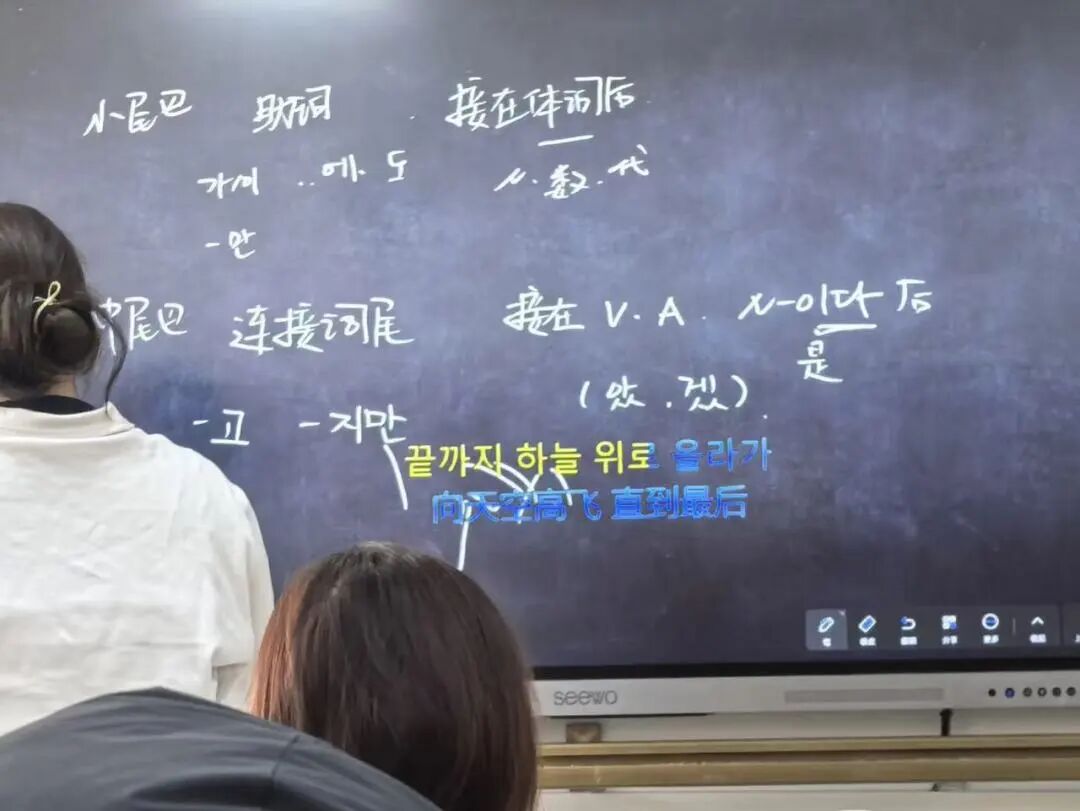 小尾巴 助词 . 接在体词后
가이 ..에. 도 N.数.代
-만
中尾巴 连接词尾 接在 V.A. N-이다 后
是
(았.겠).
-고 -지만
끝까지 하늘 위로 올라가
向天空高飞 直到最后
seewo